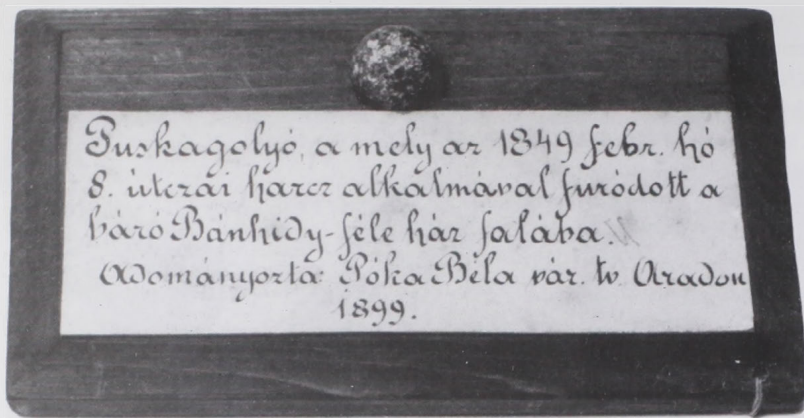 Puskagolyó, a mely az 1849 febr. hó
8. útczai harcz alkalmával furódott a
báró Bánhidy-féle ház falába.
Adományozta: Póka Béla vár. tv. Aradon
1899.